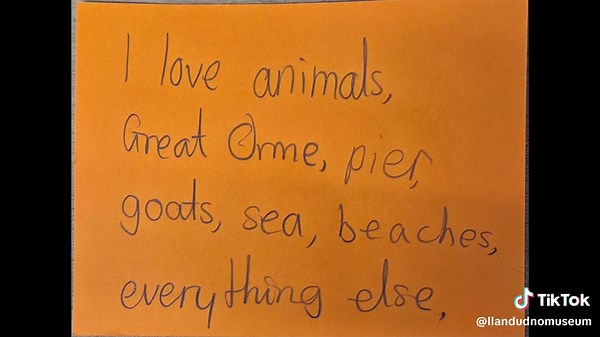 I love animals,
Great Orme, pier,
goats, sea, beaches,
everything else,
TikTok
@llandudnomuseum